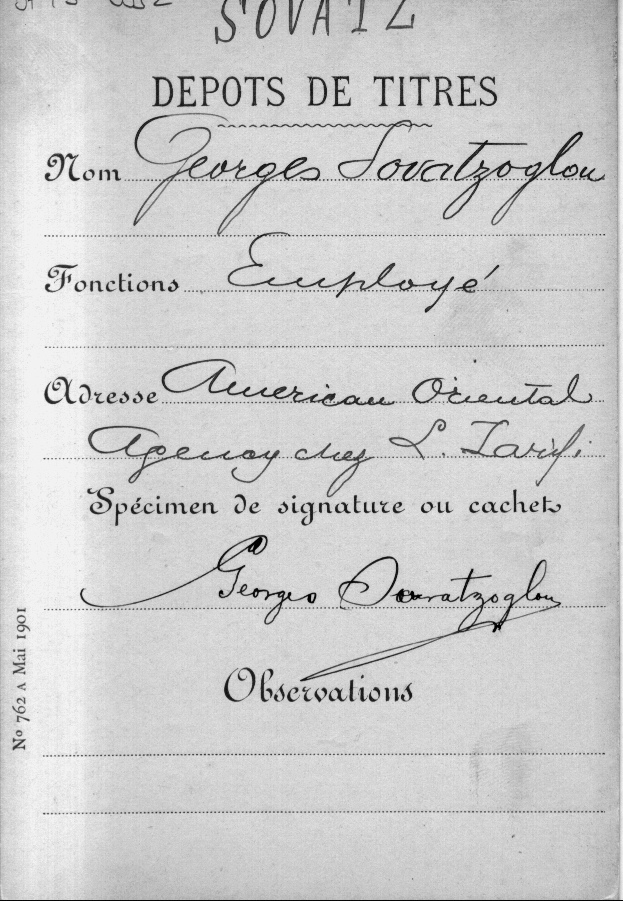 SOVATZ
DEPOTS DE TITRES
Nom Georges Sovatzoglou
Fonctions Employé
Adresse American Oriental
Agency chez L. Zarifi
Spécimen de signature ou cachet
Georges Sovatzoglou
Observations
Nº 762 A Mai 1901